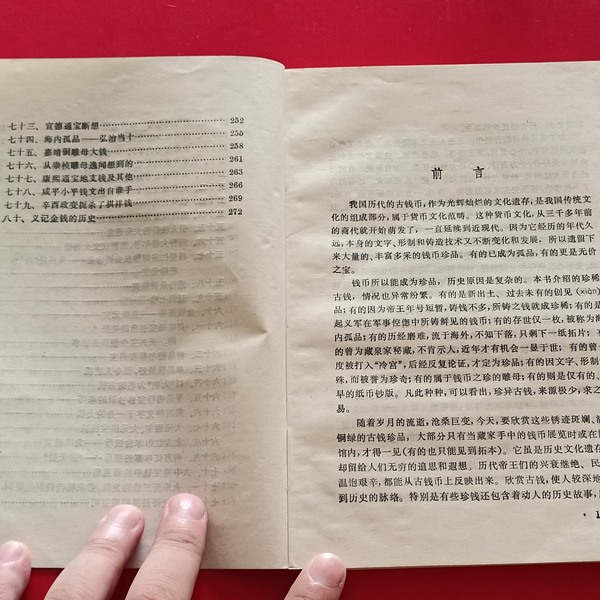 七十三、宣德通宝断想……252
七十四、海内孤品——弘治当十……255
七十五、嘉靖铜雕母大钱……258
七十六、从崇祯雕母逸闻想到的……261
七十七、康熙通宝地支钱及其他……263
七十八、咸平小平钱文出自谁手……266
七十九、辛酉政变扼杀了祺祥钱……269
八十、义记金钱的历史……272
前 言
我国历代的古钱币，作为光辉灿烂的文化遗存，是我国传统文
化的组成部分，属于货币文化范畴。这种货币文化，从三千多年前
的商代就开始萌发了，一直延续到近现代。因为它经历的年代久
远，本身的文字、形制和铸造技术又不断变化和发展，所以遗留下
来大量的、丰富多采的钱币珍品。有的已成为孤品，有的更是无价
之宝。
钱币所以能成为珍品，历史原因是复杂的。本书介绍的珍稀
古钱，情况也异常纷繁。有的是新出土、过去未有的创见（xiàn）
品；有的因为帝王年号短暂，铸钱不多，所铸之钱就成珍稀；有的是
起义军在军事倥偬中所铸鲜见的钱币；有的存世仅一枚，被称为海
内孤品；有的历经磨难，流于海外，不知下落，只剩下一纸拓片；有
的曾为藏泉家秘藏，不肯示人，近年才有机会一显于世；有的曾一
度被打入“冷宫”，后经反复论证，才定为珍品；有的因文字、形制
殊，而被誉为珍奇；有的属于钱币之珍的雕母；有的则是仅有的、
早的纸币钞版。凡此种种，可以看出，珍异古钱，来源极少，求之
易。
随着岁月的流逝，沧桑巨变，今天，要欣赏这些锈迹斑斓、
铜绿的古钱珍品，大部分只有当藏家手中的钱币展览时或在
馆内，才得一见（有的也只能见到拓本）。它虽是历史文化遗存
却留给人们无穷的追思和遐想。历代帝王们的兴衰继绝、民
温饱艰辛，都能从古钱币上反映出来。欣赏古钱，使人较深地
到历史的脉络。特别是有些珍钱还包含着动人的历史故事，
· 1